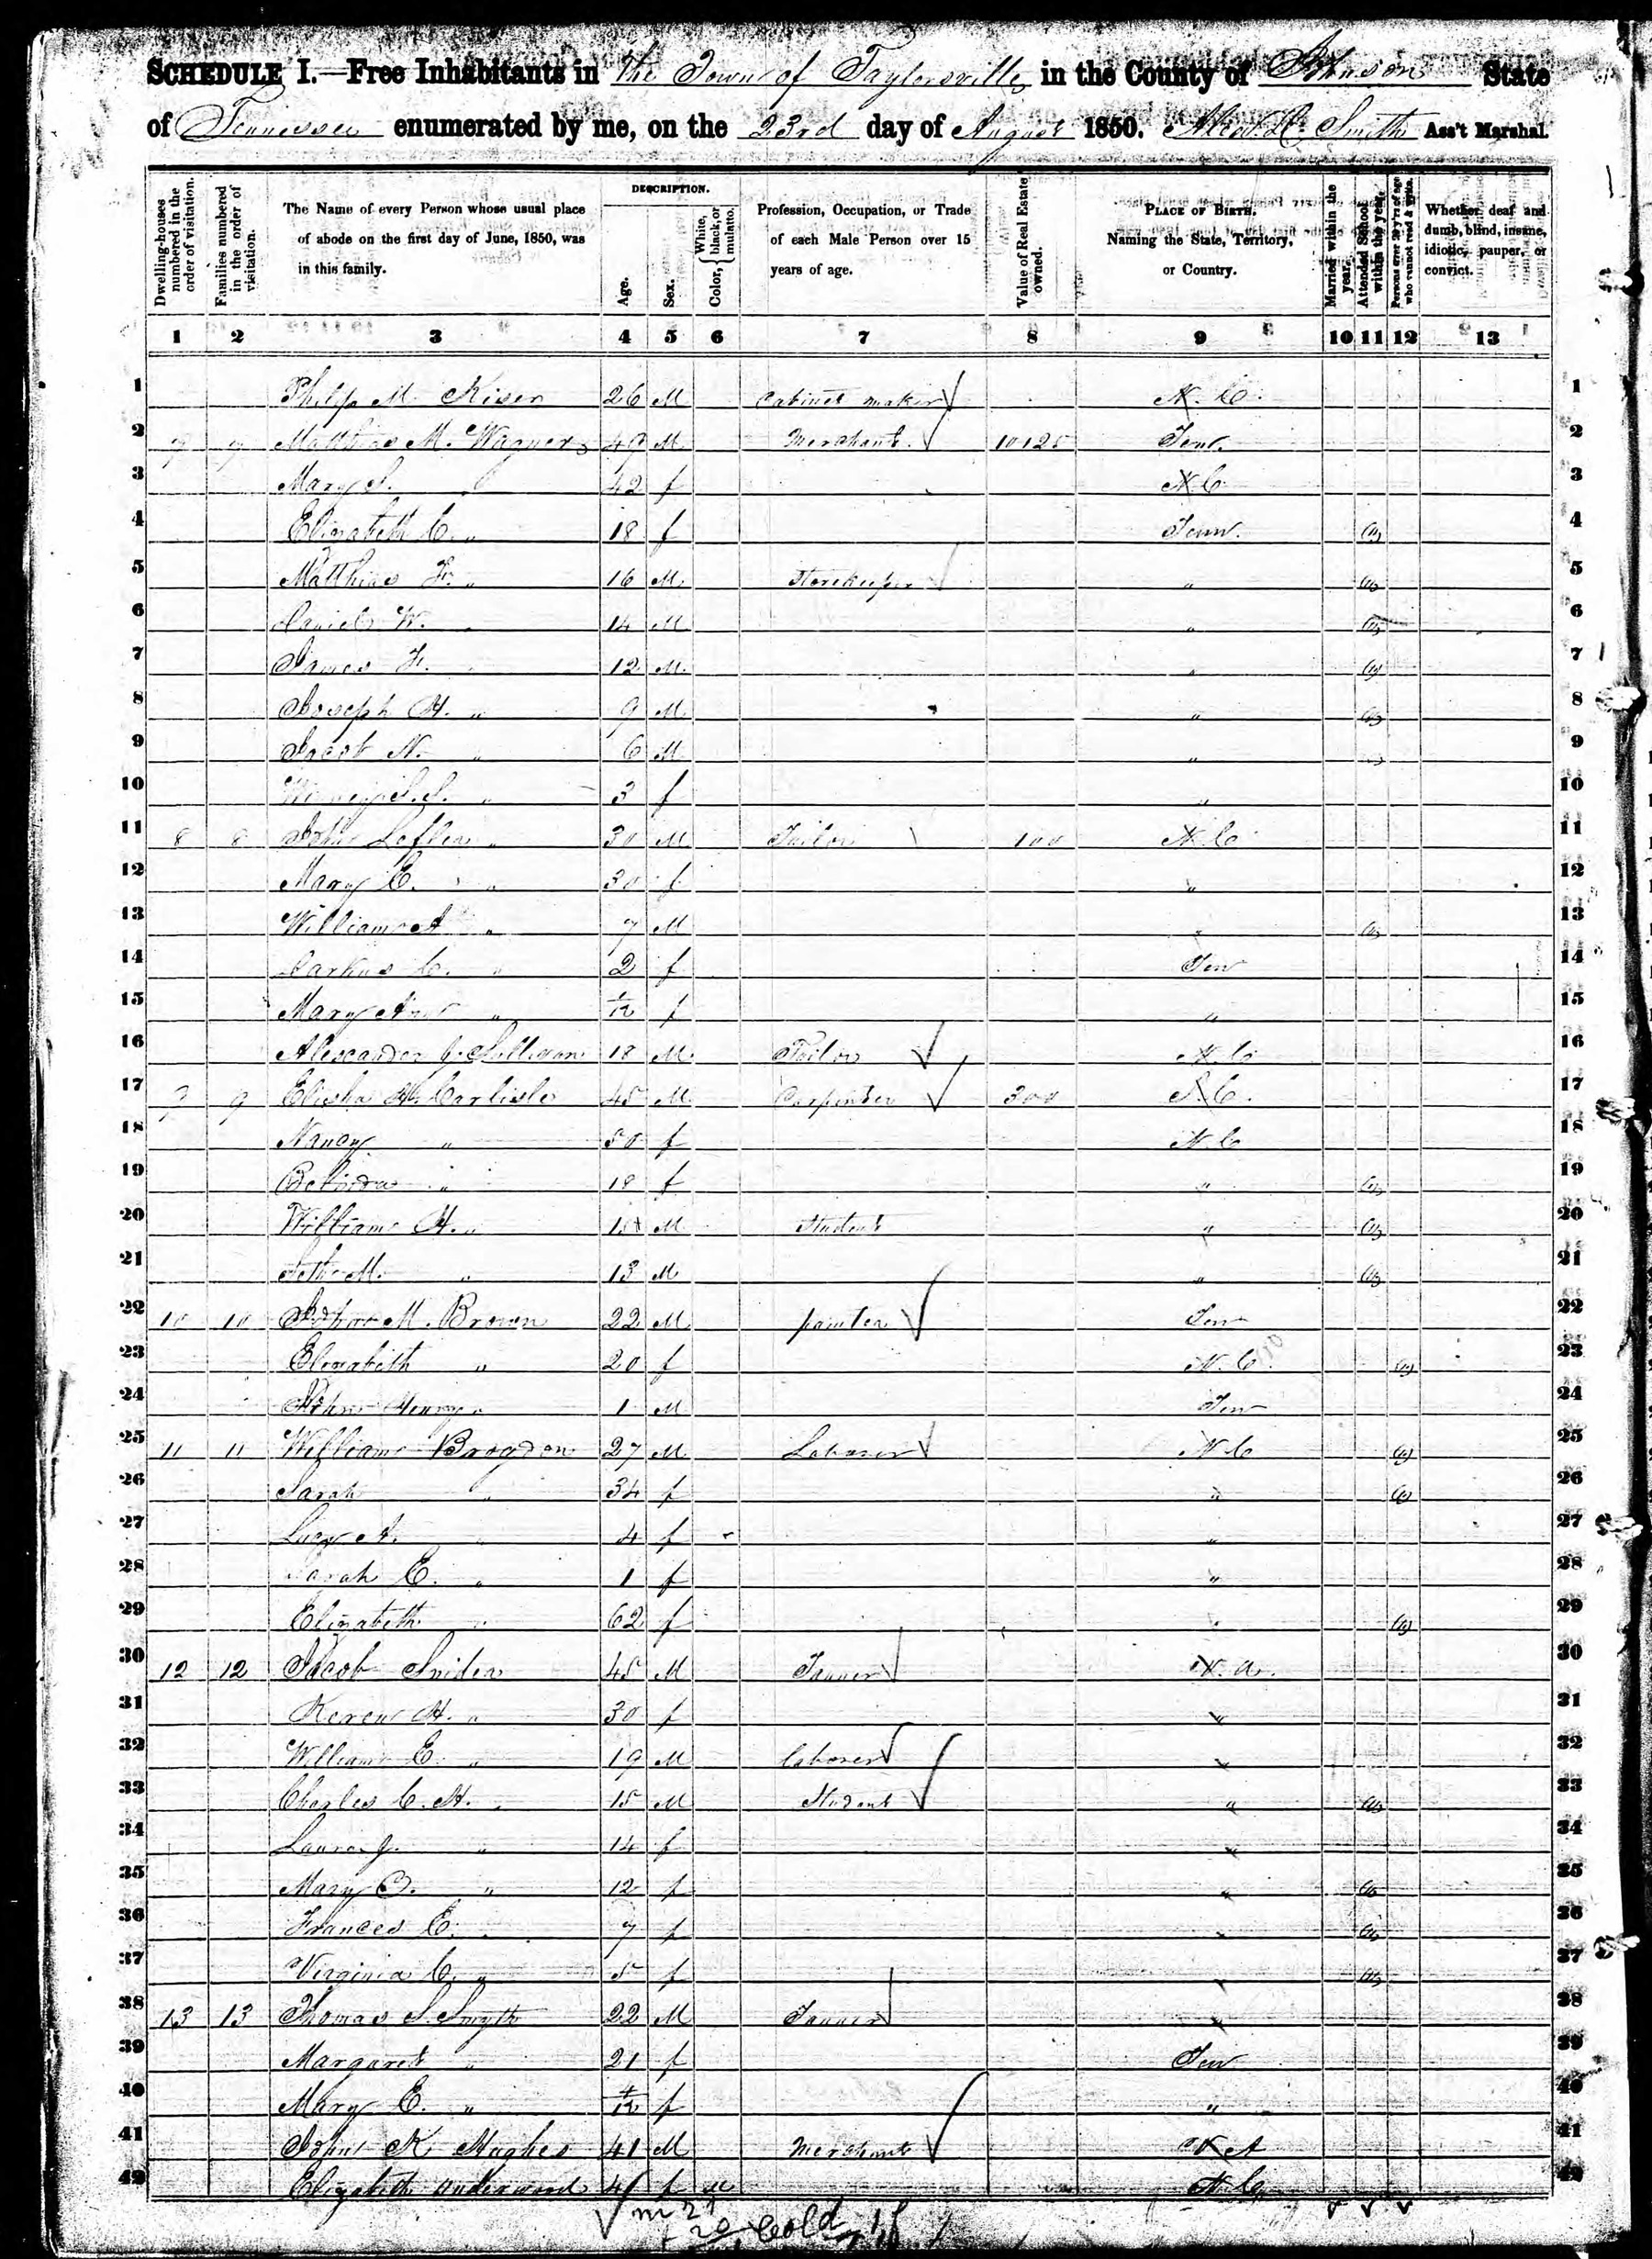 SCHEDULE I.—Free Inhabitants in the Town of Taylorsville in the County of Johnson State
of Tennessee enumerated by me, on the 23rd day of August 1850. Smith Ass't Marshal.
Dwelling-houses numbered in the order of visitation.
Families numbered in the order of visitation.
The Name of every Person whose usual place of abode on the first day of June, 1850, was in this family.
DESCRIPTION.
Age.
Sex.
Color, { White, black, or mulatto.
Profession, Occupation, or Trade of each Male Person over 15 years of age.
Value of Real Estate owned.
PLACE OF BIRTH. Naming the State, Territory, or Country.
Married within the year.
Attended School within the year.
Persons over 20 y'rs of age who cannot read & write.
Whether deaf and dumb, blind, insane, idiotic, pauper, or convict.
1 2 3 4 5 6 7 8 9 10 11 12 13
1 Philip M. Kiser 26 M Cabinet maker N. C. 1
2 7 7 Matthias M. Wagner 49 M Merchant 10125 Tenn. 2
3 Mary S. 42 f N C 3
4 Elizabeth C. " 18 f Tenn. 4
5 Matthias F. " 16 M Storekeeper " 5
6 Daniel W. 14 M " 6
7 James F. 12 M " 7
8 Joseph H. " 9 M " 8
9 Jacob N. " 6 M " 9
10 " 3 f " 10
11 8 8 John " 30 M Tailor 100 N. C 11
12 Mary C. " 30 f " 12
13 William A " 7 M " 13
14 C. " 2 f Ten 14
15 Mary Ann " 1/12 f " 15
16 Alexander J. Sullivan 18 M Tailor N. C 16
17 9 9 Elisha Carlisle 45 M Carpenter 300 S. C. 17
18 Nancy " 50 f N. C 18
19 " 18 f " 19
20 William H. " M Student " 20
21 Seth M. " 13 M " 21
22 10 10 John M. Brown 22 M painter Ten 22
23 Elizabeth " 20 f N. C. 23
24 John Henry " 1 M Ten 24
25 11 11 William Brogdon 27 M Laborer N. C 25
26 Sarah " 34 f " 26
27 Lucy A. " 4 f " 27
28 Sarah E. " 1 f " 28
29 Elizabeth " 62 f " 29
30 12 12 Jacob Snider 45 M Tanner 30
31 H. " 30 f " 31
32 William E. " 19 M laborer " 32
33 Charles C. H. " 15 M Student " 33
34 Laura J. " 14 f " 34
35 Mary " 12 f " 35
36 Frances E. " 7 f " 36
37 Virginia C. " 5 f " 37
38 13 13 Thomas S. Smyth 22 M Tanner " 38
39 Margaret " 21 f Ten 39
40 Mary E. " 4/12 f " 40
41 John K. Hughes 41 M Merchant 41
42 Elizabeth Underwood f M N. C. 42
Cold